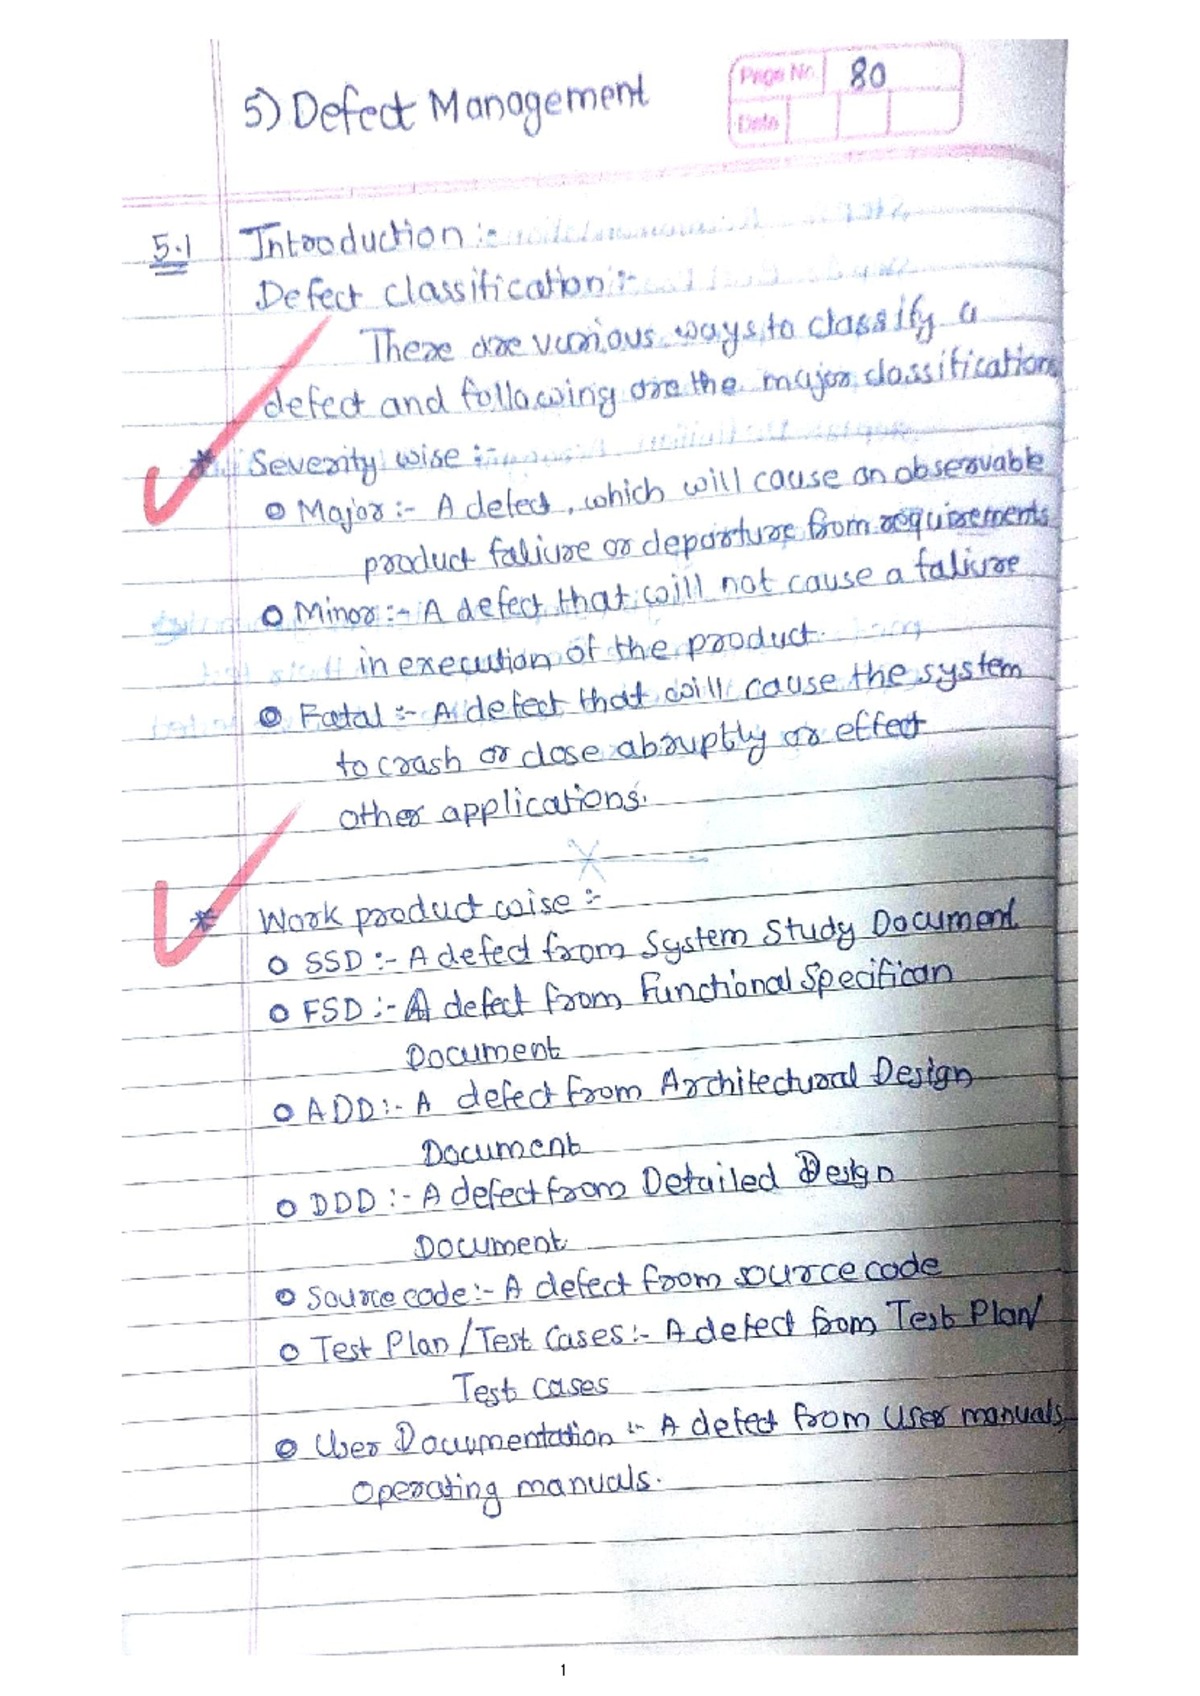 5) Defect Management
Page No. 80
Date
5.1 Introduction :-
Defect classification :-
There are various ways to classify a
defect and following are the major classification
* Severity wise :-
o Major :- A defect, which will cause an observable
product faliure or departure from requirements
o Minor :- A defect that will not cause a faliure
in execution of the product.
o Fatal :- A defect that will cause the system
to crash or close abruptly or effect
other applications.
X
* Work product wise :-
o SSD :- A defect from System Study Document
o FSD :- A defect from Functional Specifican
Document
o ADD :- A defect from Architectural Design
Document
o DDD :- A defect from Detailed Design
Document
o Source code :- A defect from source code
o Test Plan / Test Cases :- A defect from Test Plan/
Test cases
o User Documentation :- A defect from User manuals,
operating manuals.
1